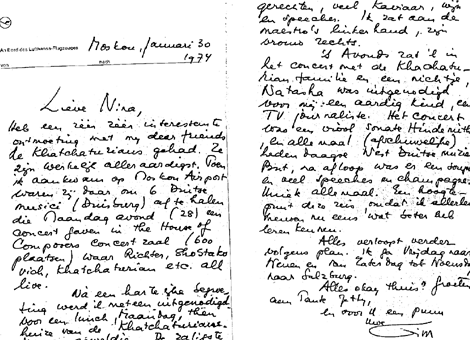 An Bord des Lufthansa-Flugzeuges
von nach
Moskou, Januari 30
1974
Lieve Nina,
Heb een zéér zéér interessante
ontmoeting met my dear friends
de Khatchaturians gehad. Ze
zijn werkelijk alleraardigst. Toen
ik aankwam op Moskou Airport
waren zij daar om 6 Duitse
musici (Duisburg) af te halen
die Maandag avond (28) een
concert gaven in the House of
Composers concert zaal (600
plaatsen) waar Richter, Shostako
vich, Khatchaturian etc. all
live.
Na een hartelijke begroe-
ting werd ik meteen uitgenodigd
voor een lunch Maandag, then
huize van de Khatchaturians
De zaligste
gerechten, veel Kaviaar, wijn
en speeches. Ik zat aan de
maestro's linkerhand, zijn
vrouw rechts.
's Avonds zat ik in
het concert met de Khachatu-
rian familie en een nichtje,
Natasha was uitgenodigd
voor mij: een aardig kind, een
TV journaliste. Het concert
was een viool sonate Hindemith
en allemaal (afschuwelijke)
hedendaagse West Duitse muziek
Bont, na afloop was er een souper
en veel speeches en champagne.
Uniek allemaal. Een hoogte-
punt deze reis, omdat ik allerlei
mensen nu eens wat beter heb
leren kennen.
Alles verloopt verder
volgens plan. Ik ga Vrijdag naar
Wenen en van Zaterdag tot Woensdag
naar Salzburg.
Alles okay thuis? Groeten
aan Tante Jetty,
en voor U een
Uwe
Wim